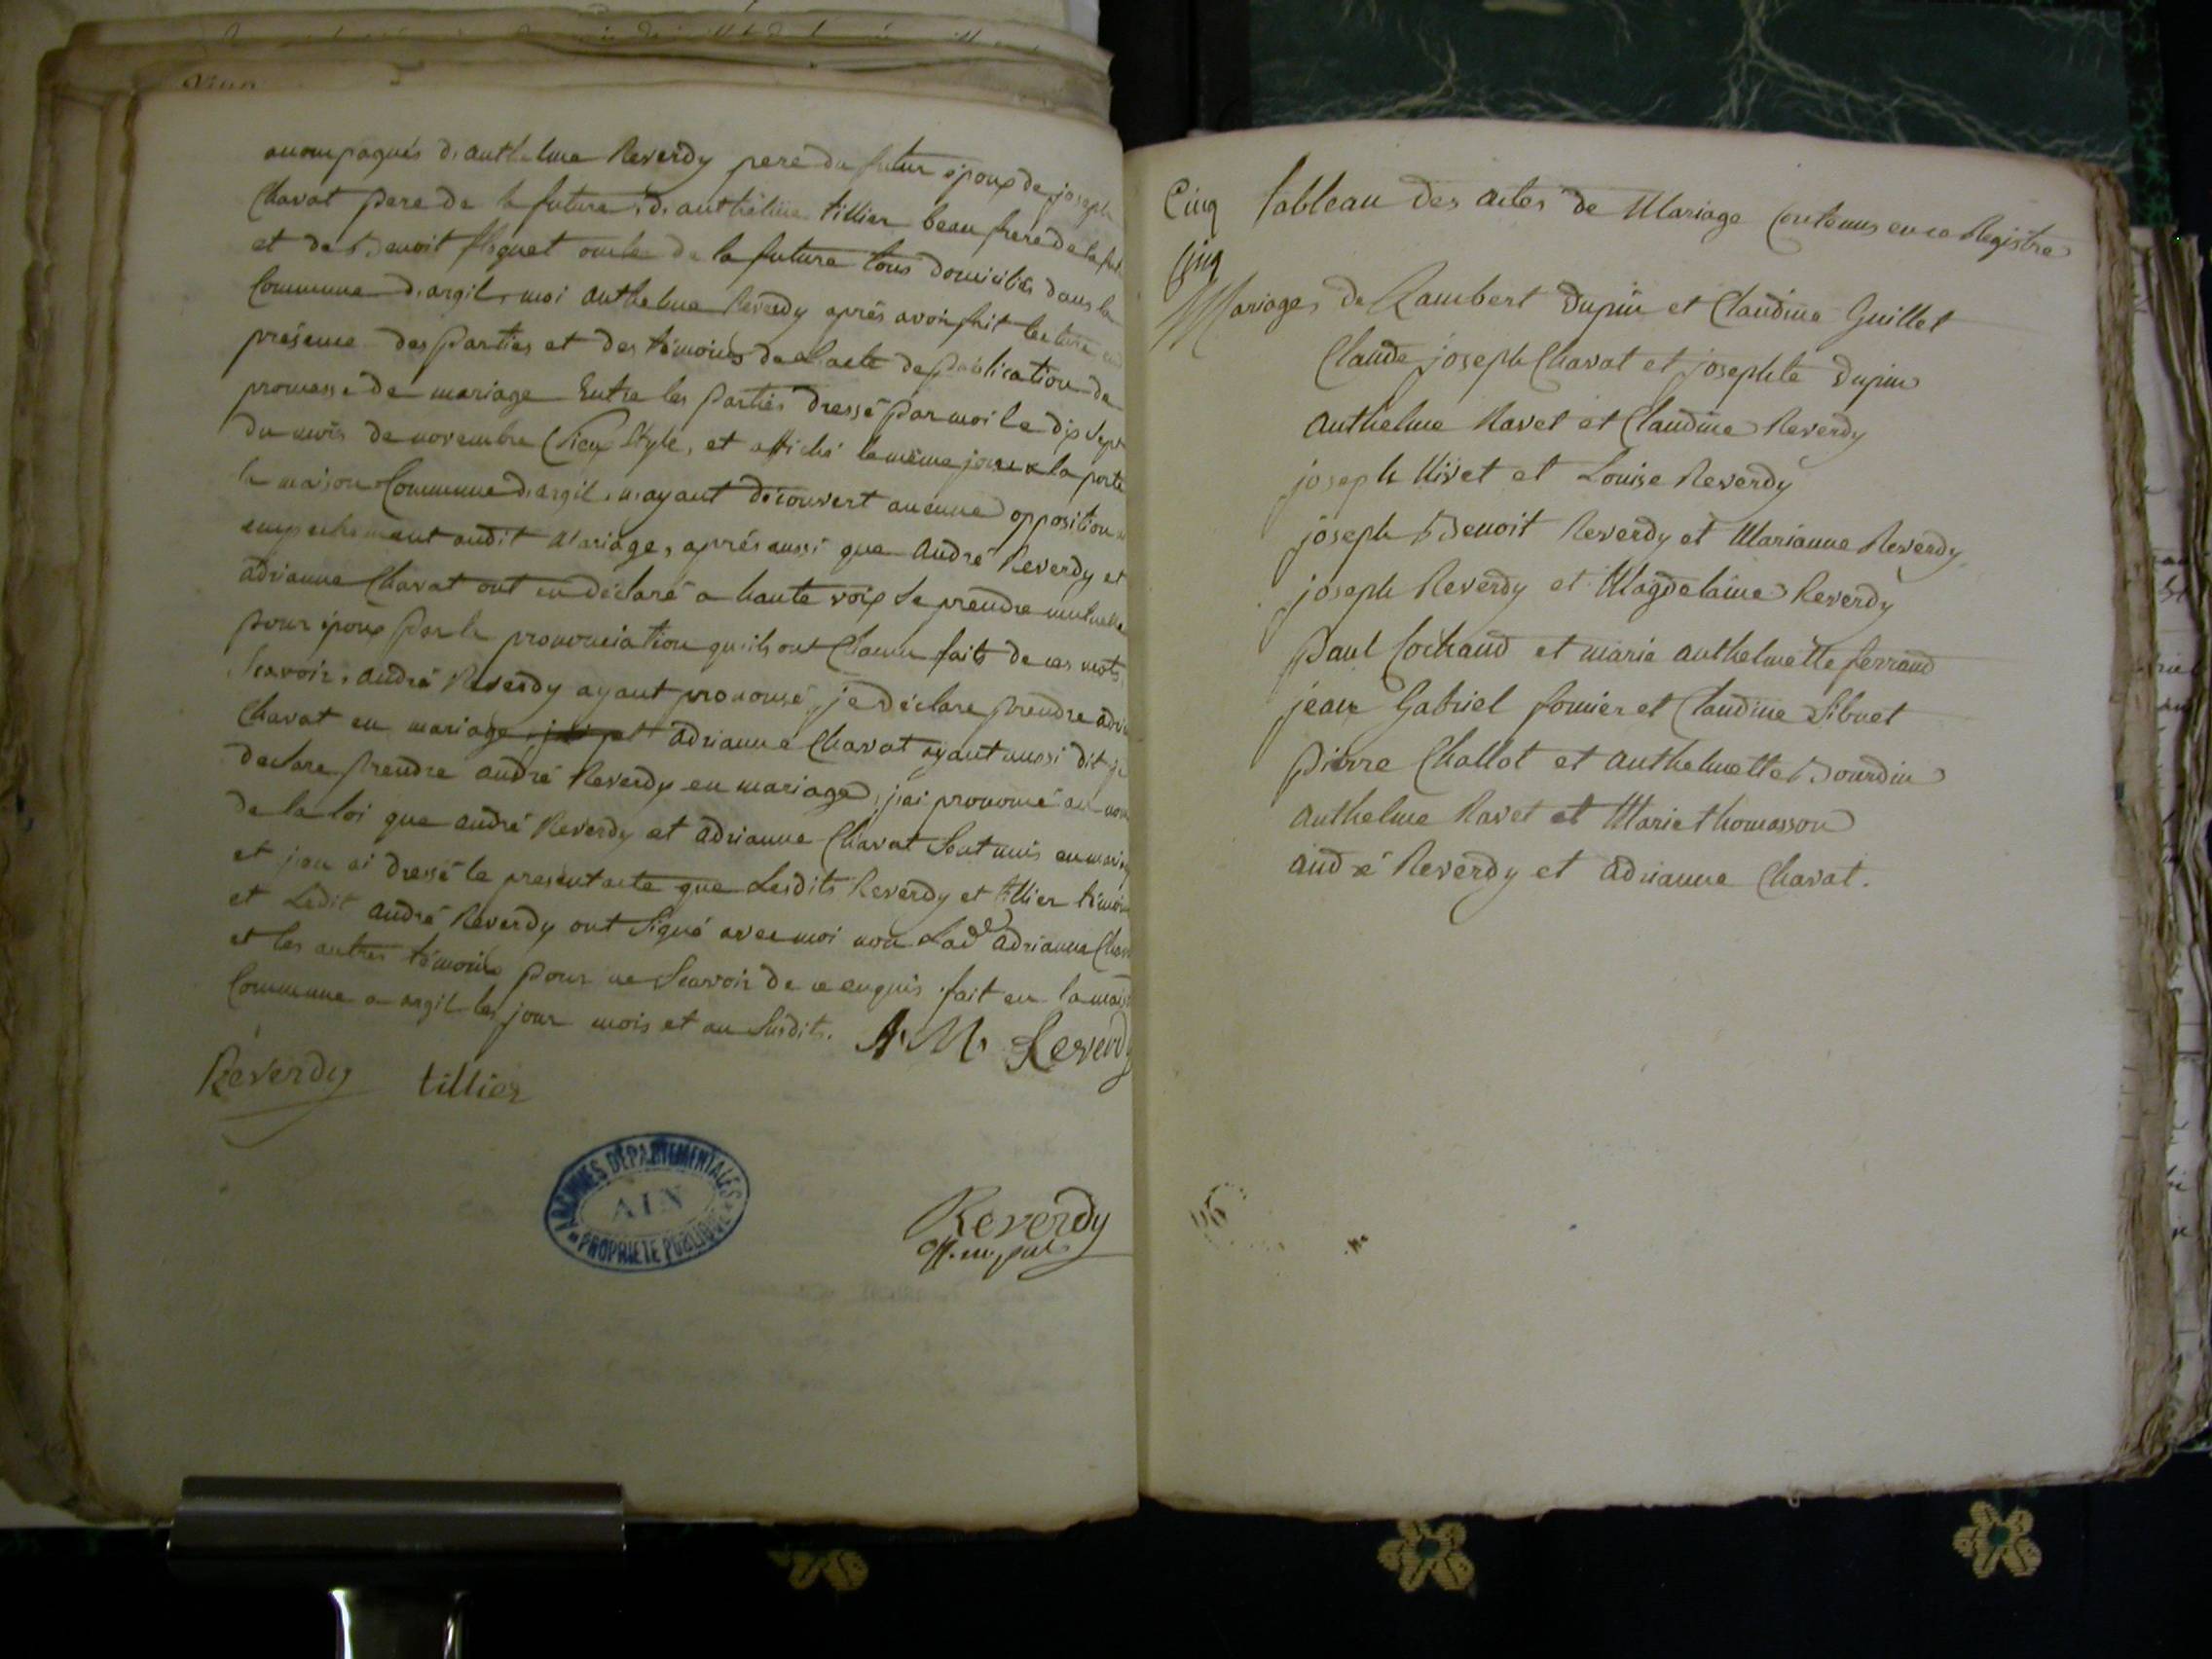 acompagnés d'anthelme Reverdy pere du futur époux de joseph
Chavat pere de la future, d'anthelme tillier beau frere de la fut
et de Benoit floquet oncle de la future tous domiciliés dans la
Commune d'argil, moi anthelme Reverdy aprés avoir fait lecture en
présence des parties et des témoins de l'acte de publication de
promesse de mariage Entre les parties dressé par moi le dix sept
du mois de novembre vieux Style, et affiché le même jour a la porte
la maison Commune d'argil, n'ayant découvert aucune opposition
empechement audit Mariage, aprés aussi que André Reverdy et
adrianne Chavat ont eu déclaré a haute voix se prendre mutuelle
pour époux par la prononciation qu'ils ont Chacun faits de ces mots,
Scavoir, andré Reverdy ayant prononcé, je déclare prendre adri
Chavat en mariage adrianne Chavat ayant aussi dit je
declare prendre andré Reverdy en mariage, j'ai prononcé au nom
de la loi que andré Reverdy et adrianne Chavat Sont unis en mariag
et j'en ai dressé le present acte que Lesdits Reverdy et tillier témoins
et Ledit André Reverdy ont Signé avec moi non Lad.e adrianne Chav
et les autres témoins pour ne Scavoir de ce enquis fait en la mais
Commune a argil les jour mois et an Susdits. A. M. Reverdy
Reverdy tillier
ARCHIVES DÉPARTEMENTALES
AIN
PROPRIÉTÉ PUBLIQUE
Reverdy
off. mupal
Cinq tableau des actes de Mariage Contenus en ce Registre
Cinq
Mariages de Rambert Dupin et Claudine Guillet
Claude joseph Chavat et josephte Dupin
Anthelme Ravet et Claudine Reverdy
joseph Nivet et Louise Reverdy
joseph Benoit Reverdy et Marianne Reverdy
joseph Reverdy et Magdelaine Reverdy
paul Cochand et marie anthelmette ferrand
jean Gabriel fornier et Claudine Sibuet
pierre Challot et Anthelmette Bourdin
Anthelme Ravet et Marie thomasson
andré Reverdy et adrianne Chavat.